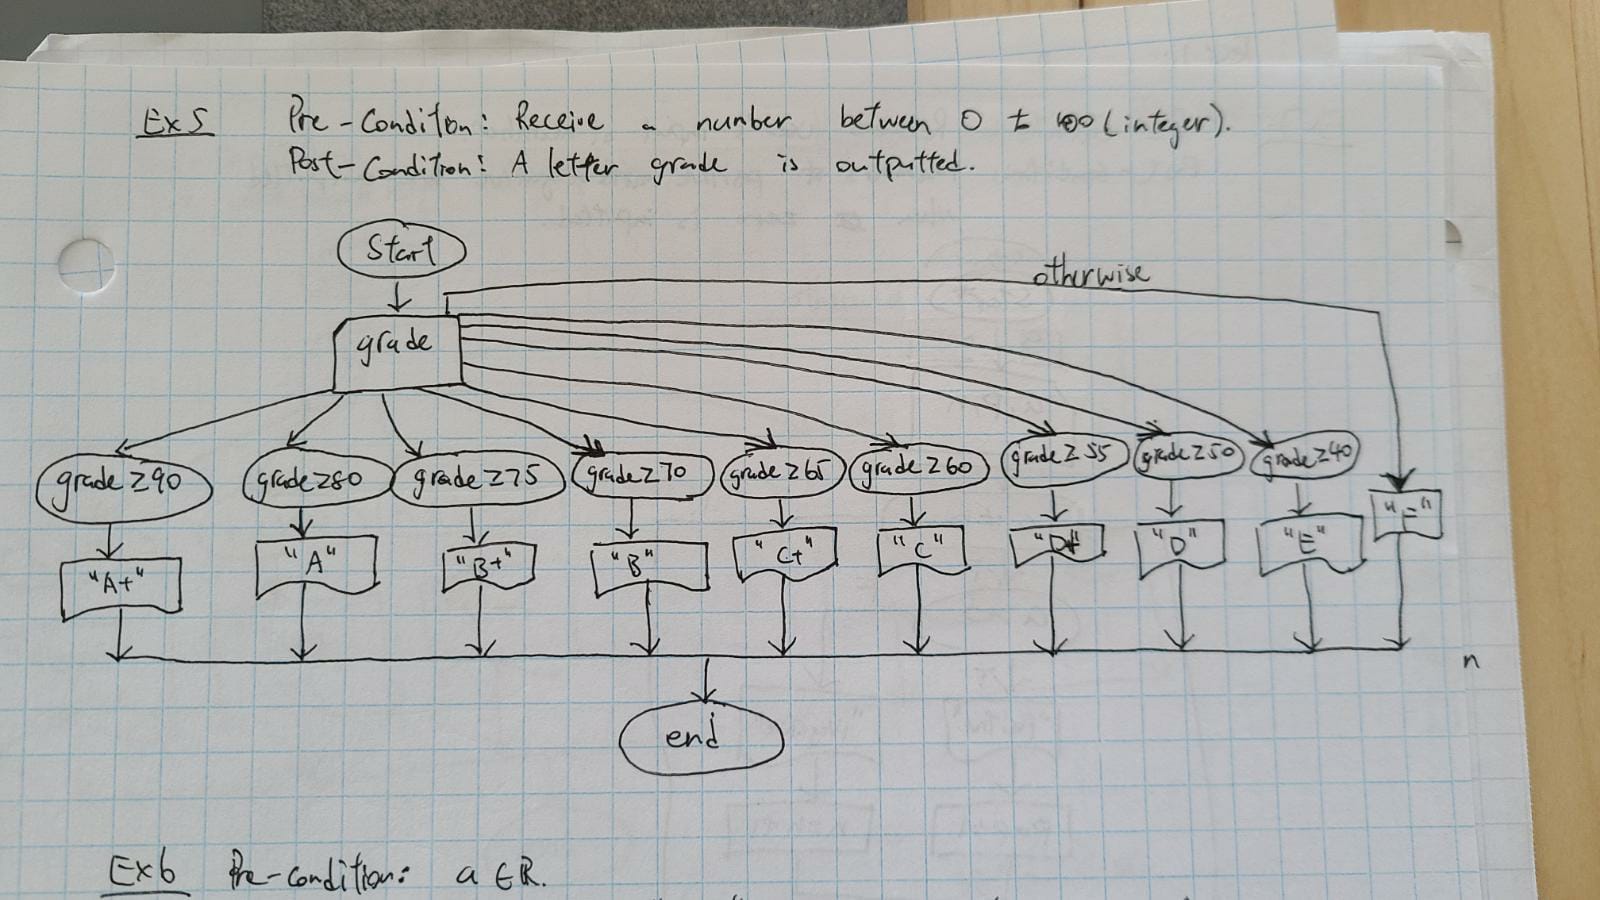 Ex5 Pre-Condition: Receive a number between 0 ± 100 (integer).
Post-Condition: A letter grade is outputted.
Start
otherwise
grade
grade ≥90 grade ≥80 grade ≥75 grade ≥70 grade ≥65 grade ≥60 grade ≥55 grade ≥50 grade ≥40
"A+" "A" "B+" "B" "C+" "C" "D+" "D" "E" "F"
n
end
Ex6 Pre-condition: a ∈ℝ.